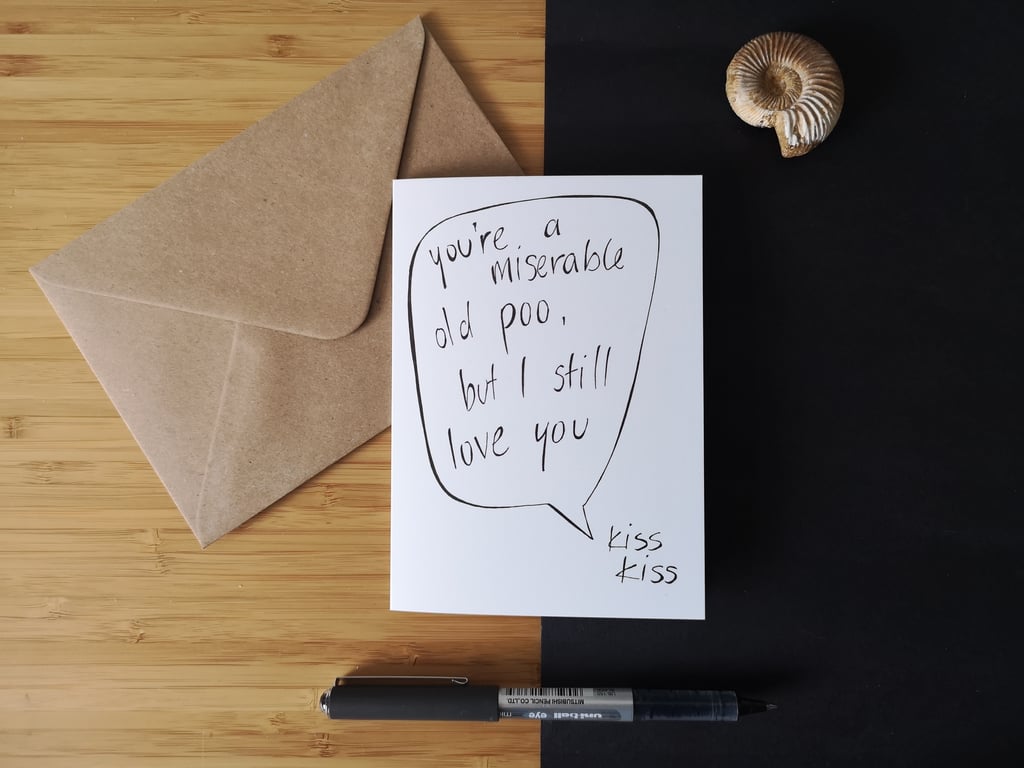 you're a
miserable
old poo,
but I still
love you
kiss
kiss
MITSUBISHI PENCIL CO.LTD.
uni-ball eye